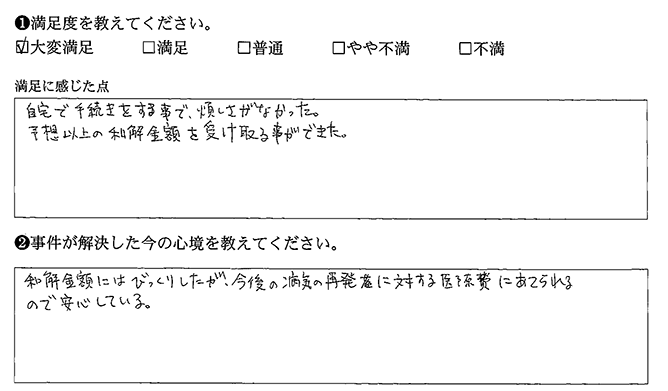 ❶満足度を教えてください。
☑大変満足 □満足 □普通 □やや不満 □不満
満足に感じた点
自宅で手続きをする事で、煩しさがなかった。
予想以上の和解金額を受け取る事ができた。
❷事件が解決した今の心境を教えてください。
和解金額にはびっくりしたが、今後の病気の再発等に対する医療費にあてられる
ので安心している。